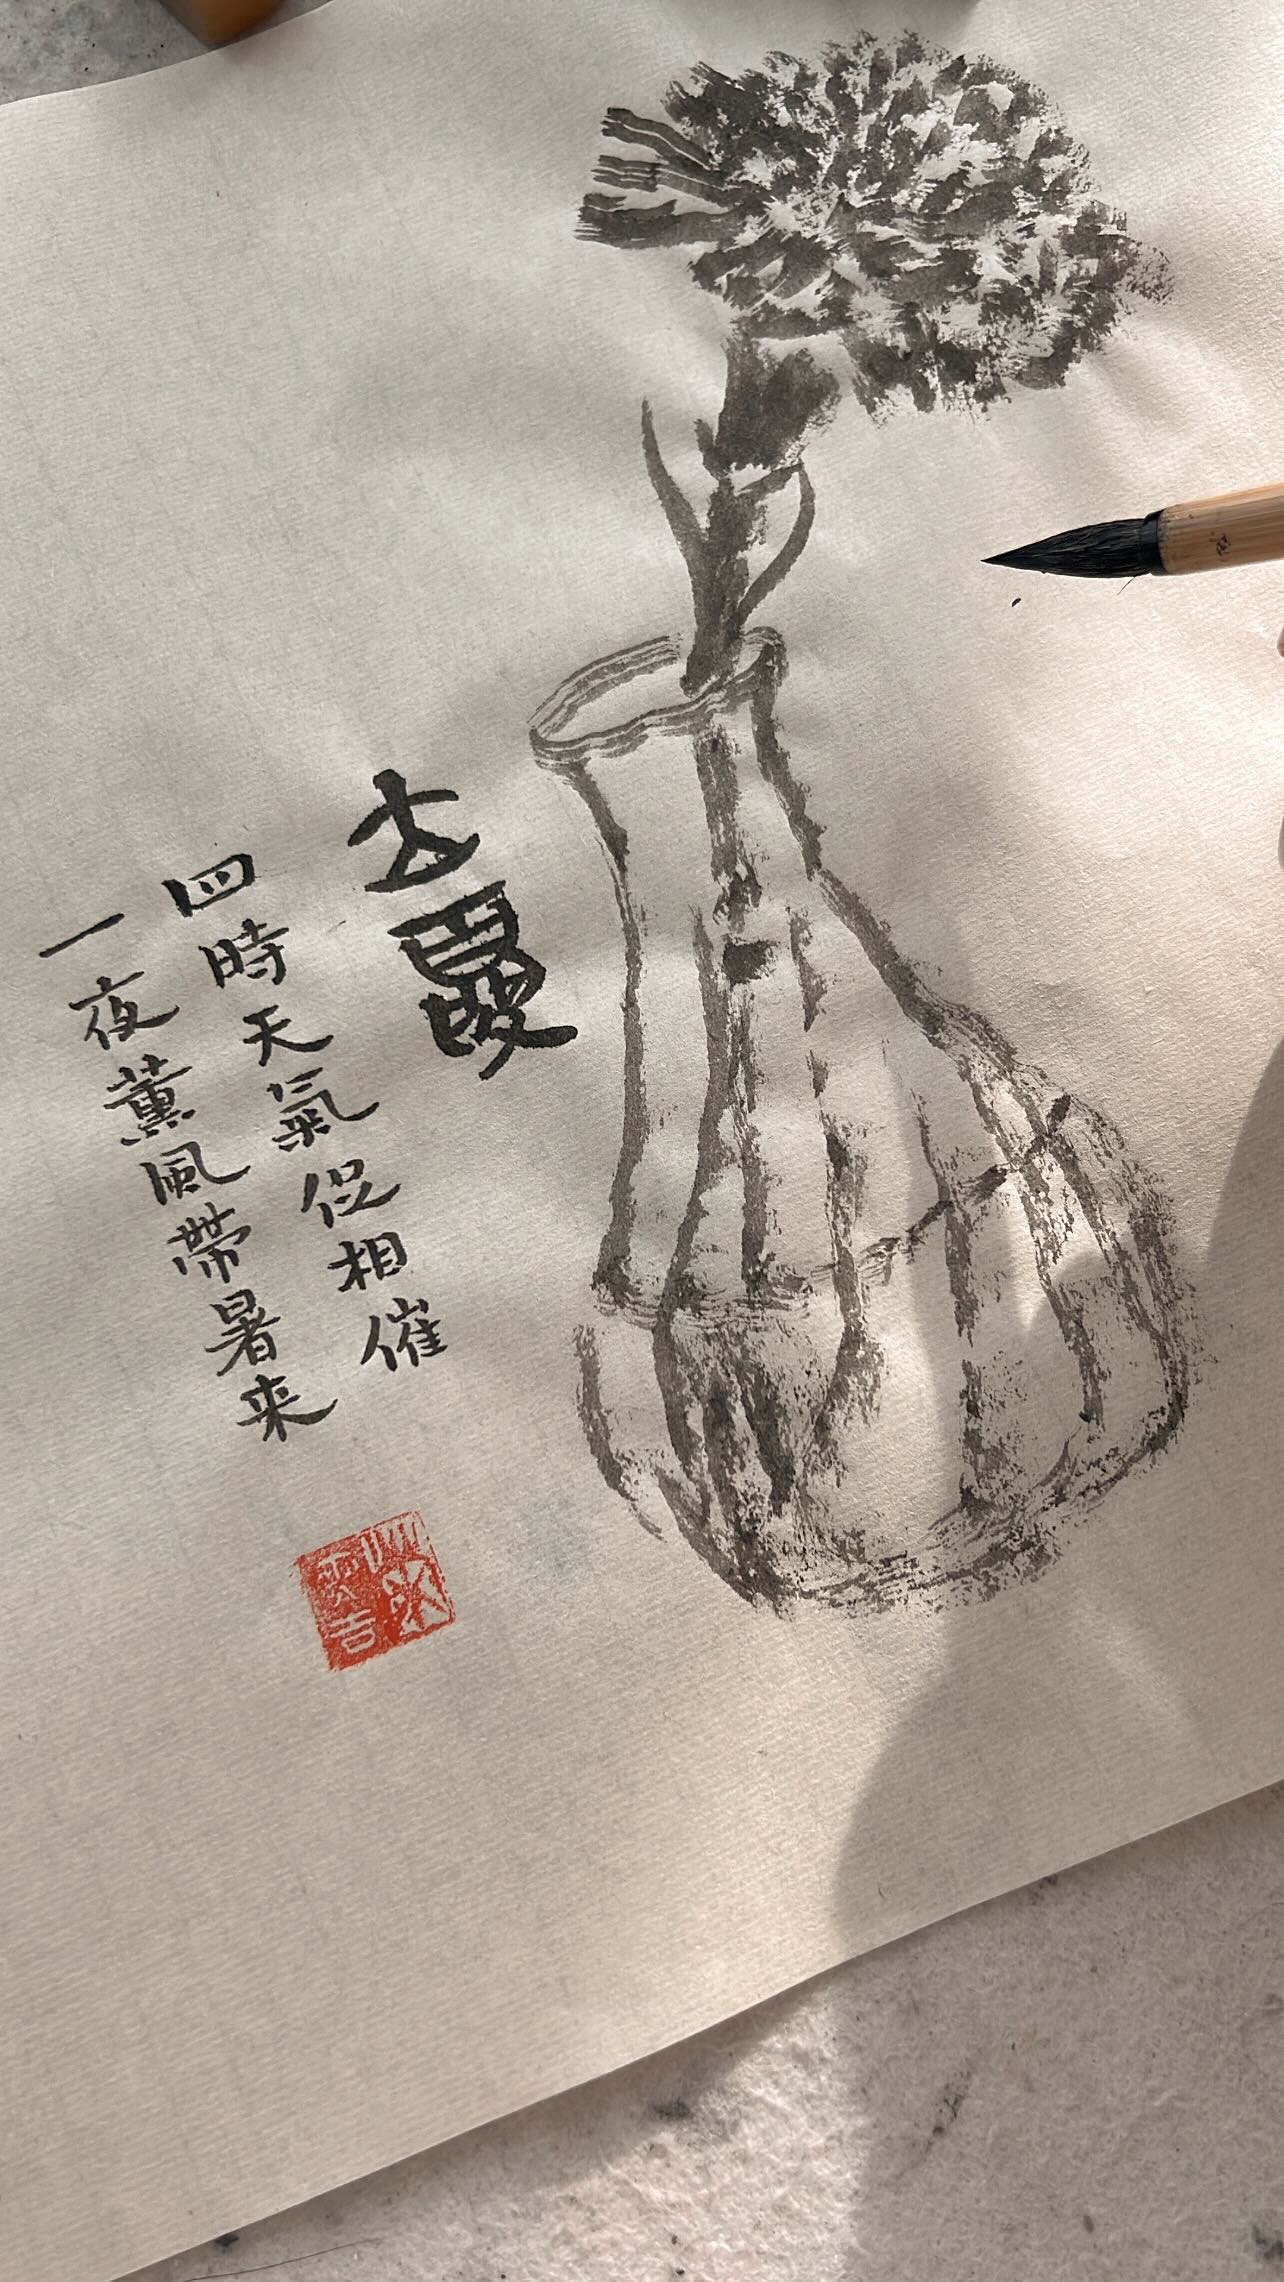 立夏
四時天氣促相催
一夜薰風帶暑来